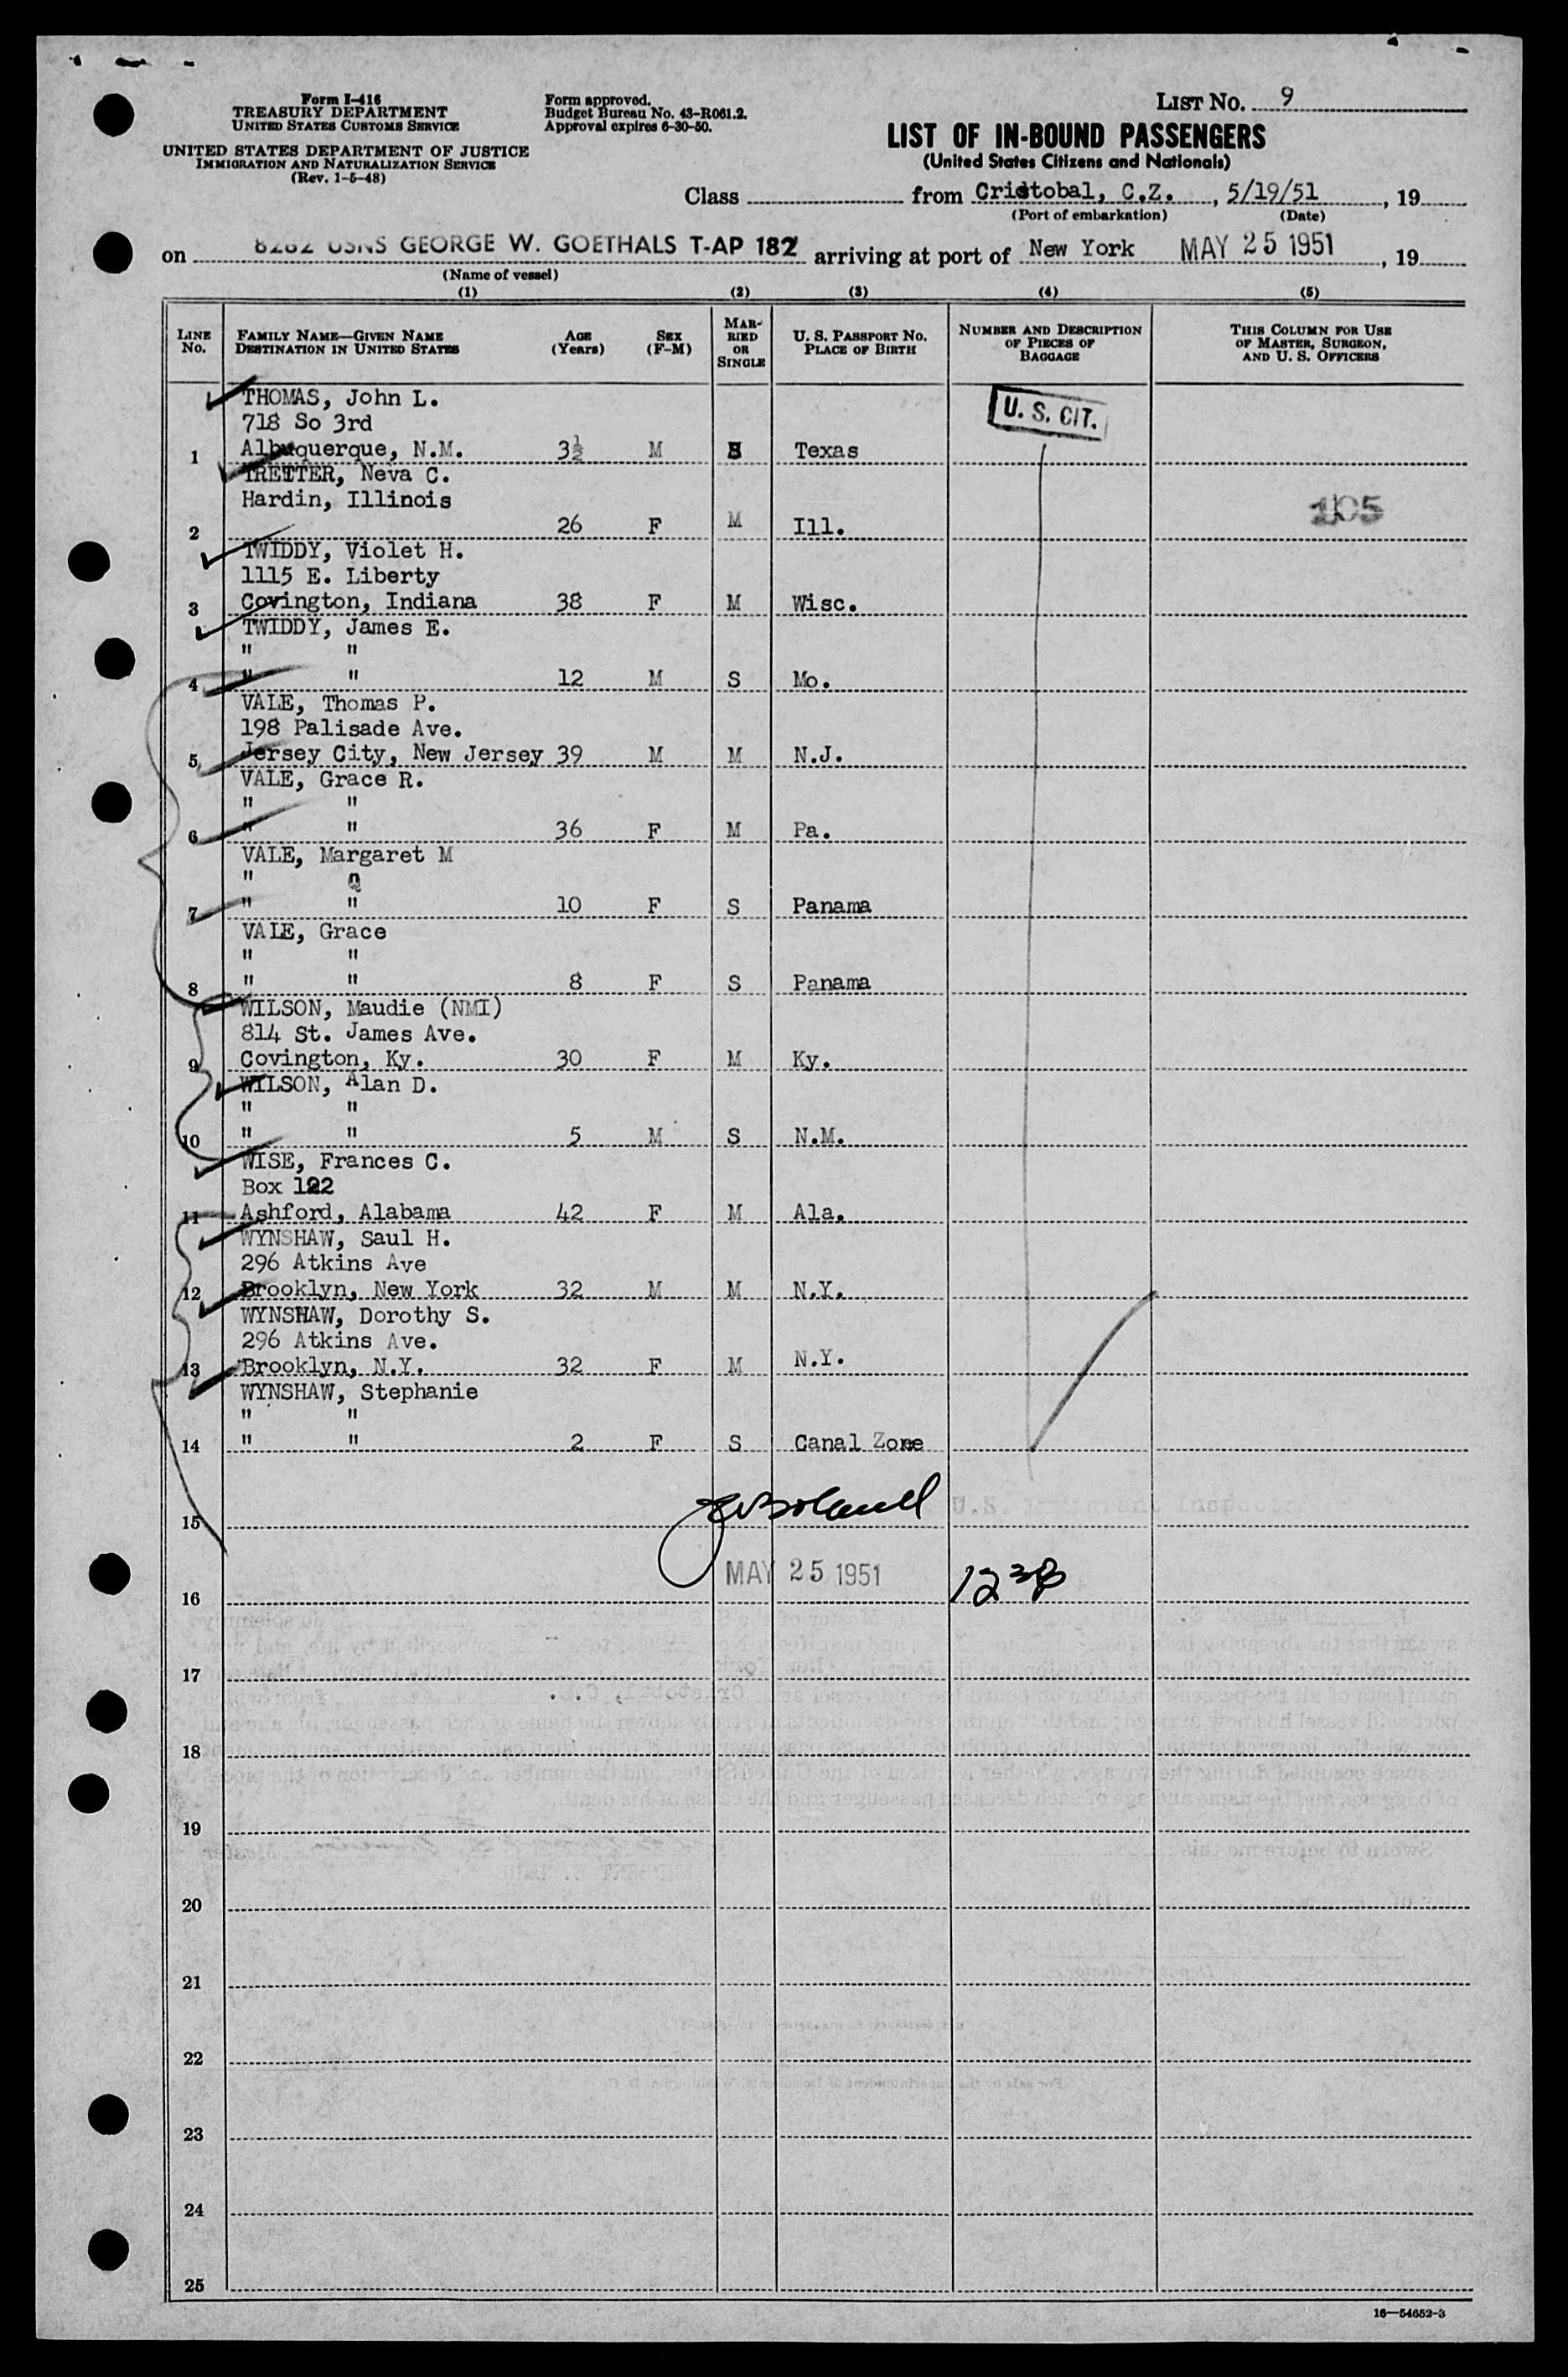 Form I-416
TREASURY DEPARTMENT
UNITED STATES CUSTOMS SERVICE
UNITED STATES DEPARTMENT OF JUSTICE
IMMIGRATION AND NATURALIZATION SERVICE
(Rev. 1-5-48)
Form approved.
Budget Bureau No. 43-R061.2.
Approval expires 6-30-50.
LIST No. 9
LIST OF IN-BOUND PASSENGERS
(United States Citizens and Nationals)
Class from Cristobal, C.Z. , 5/19/51 , 19
(Port of embarkation) (Date)
on 8282 USNS GEORGE W. GOETHALS T-AP 182 arriving at port of New York MAY 25 1951 , 19
(Name of vessel)
(1) (2) (3) (4) (5)
LINE No. FAMILY NAME—GIVEN NAME DESTINATION IN UNITED STATES AGE (Years) SEX (F-M) MARRIED OR SINGLE U. S. PASSPORT NO. PLACE OF BIRTH NUMBER AND DESCRIPTION OF PIECES OF BAGGAGE THIS COLUMN FOR USE OF MASTER, SURGEON, AND U. S. OFFICERS
THOMAS, John L. U. S. CIT.
718 So 3rd
1 Albuquerque, N.M. 3½ M S Texas
TRETTER, Neva C.
Hardin, Illinois 105
2 26 F M Ill.
TWIDDY, Violet H.
1115 E. Liberty
3 Covington, Indiana 38 F M Wisc.
TWIDDY, James E.
" "
4 " " 12 M S Mo.
VALE, Thomas P.
198 Palisade Ave.
5 Jersey City, New Jersey 39 M M N.J.
VALE, Grace R.
" "
6 " " 36 F M Pa.
VALE, Margaret M
" "
7 " " 10 F S Panama
VALE, Grace
" "
8 " " 8 F S Panama
WILSON, Maudie (NMI)
814 St. James Ave.
9 Covington, Ky. 30 F M Ky.
WILSON, Alan D.
" "
10 " " 5 M S N.M.
WISE, Frances C.
Box 122
11 Ashford, Alabama 42 F M Ala.
WYNSHAW, Saul H.
296 Atkins Ave
12 Brooklyn, New York 32 M M N.Y.
WYNSHAW, Dorothy S.
296 Atkins Ave.
13 Brooklyn, N.Y. 32 F M N.Y.
WYNSHAW, Stephanie
" "
14 " " 2 F S Canal Zone
15
MAY 25 1951
16
17
18
19
20
21
22
23
24
25
16—54652-3